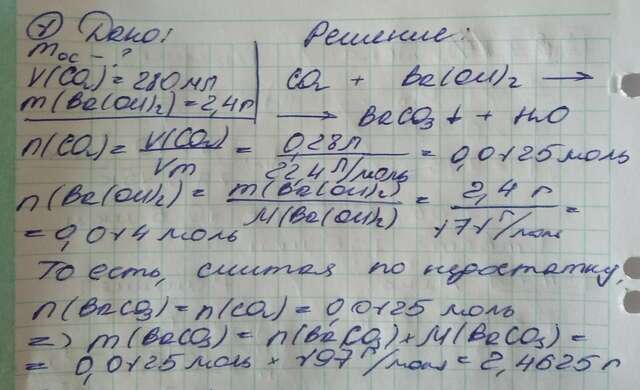 ① Дано: Решение:
mос - ?
V(CO₂) = 280 мл CO₂ + Ba(OH)₂ →
m(Ba(OH)₂) = 2,4 г → BaCO₃↓ + H₂O
n(CO₂) = V(CO₂)/Vm = 0,28 л/22,4 л/моль = 0,0125 моль
n(Ba(OH)₂) = m(Ba(OH)₂)/M(Ba(OH)₂) = 2,4 г/171 г/моль =
= 0,014 моль
То есть, считая по недостатку,
n(BaCO₃) = n(CO₂) = 0,0125 моль
=> m(BaCO₃) = n(BaCO₃) × M(BaCO₃) =
= 0,0125 моль × 197 г/моль = 2,4625 г